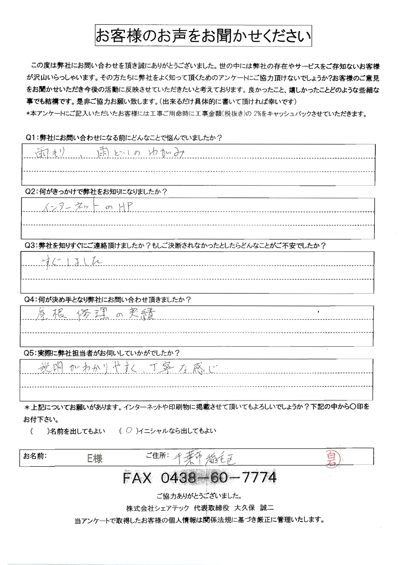 お客様のお声をお聞かせください
この度は弊社にお問い合わせを頂き誠にありがとうございました。世の中には弊社の存在やサービスをご存知ないお客様
が沢山いらっしゃいます。その方たちに弊社をよく知って頂くためのアンケートにご協力頂けないでしょうか？お客様のご意見
をお聞かせいただき今後の活動に反映させていただきたいと考えております。良かったこと、嬉しかったことどのような些細な
事でも結構です。是非ご協力お願い致します。（出来るだけ具体的に書いて頂ければ幸いです）
*本アンケートにご記入いただいたお客様には工事ご用命時に工事金額(税抜き)の2%をキャッシュバックさせていただきます。
Q1：弊社にお問い合わせになる前にどんなことで悩んでいましたか？
雨もり、雨どいのゆがみ
Q2：何がきっかけで弊社をお知りになりましたか？
インターネットのHP
Q3：弊社を知りすぐにご連絡頂けましたか？もしご決断されなかったとしたらどんなことがご不安でしたか？
すぐしました
Q4：何が決め手となり弊社にお問い合わせ頂きましたか？
屋根修理の実績
Q5：実際に弊社担当者がお伺いしていかがでしたか？
説明がわかりやすく、丁寧な感じ
*上記についてお願いがあります。インターネットや印刷物に掲載させて頂いてもよろしいでしょうか？下記の中から〇印を
お付下さい。
（　）名前を出してもよい　（〇）イニシャルなら出してもよい
お名前： E様 ご住所： 千葉市稲毛区
FAX 0438-60-7774
ご協力ありがとうございました。
株式会社シェアテック 代表取締役 大久保 誠二
当アンケートで取得したお客様の個人情報は関係法規に基づき厳正に管理いたします。